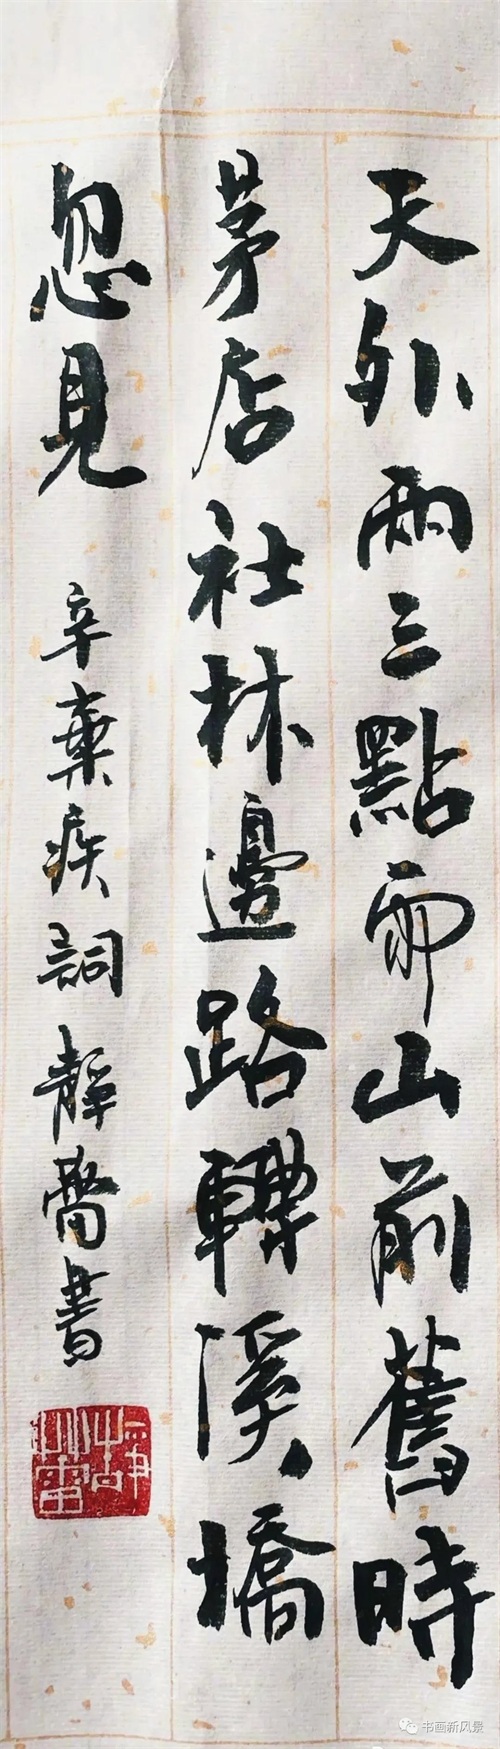 天外兩三點雨山前舊時
茅店社林邊路轉溪橋
忽見
辛棄疾詞靜
書
书画新风景